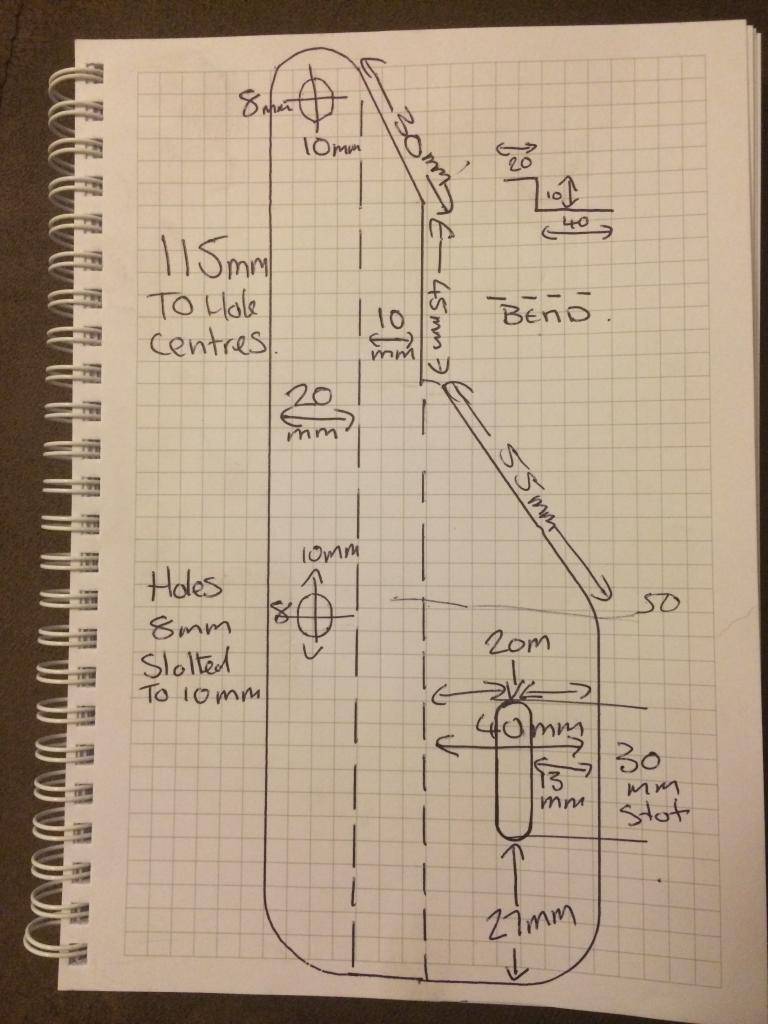 8mm
10mm
30mm
20
10
40
115mm
TO Hole
Centres
45mm
BEND
10
mm
20
mm
55mm
10mm
8
Holes
8mm
Slotted
To 10mm
50
20m
40mm
13
mm
30
mm
Slot
27mm